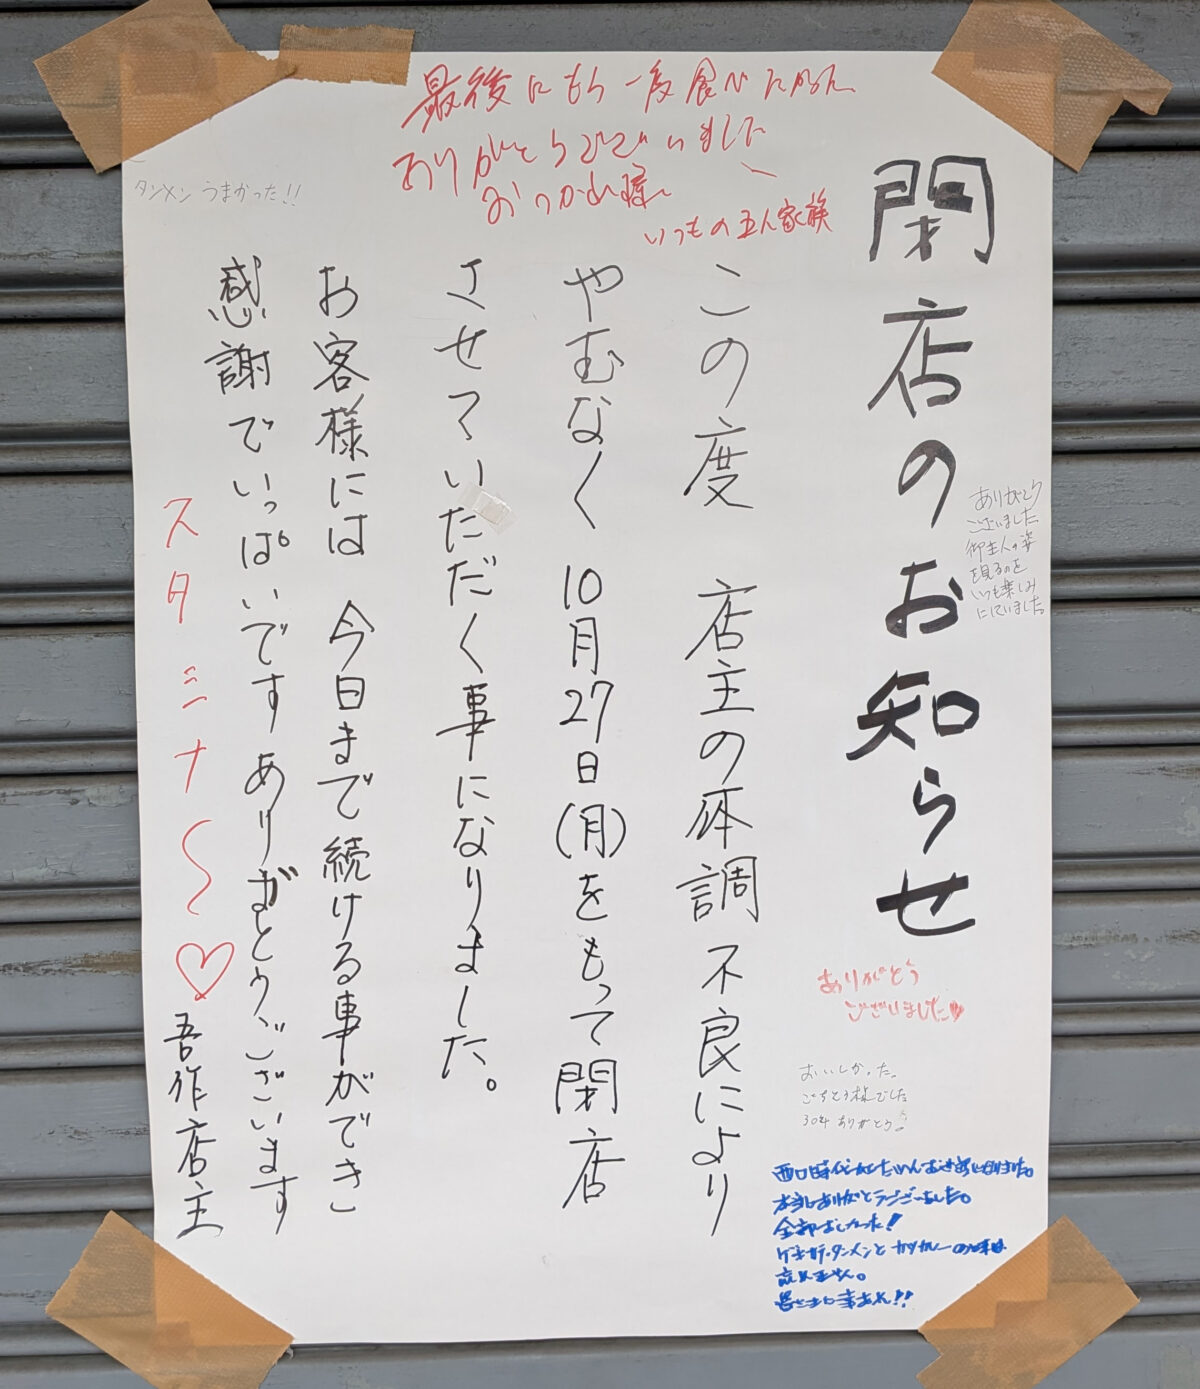 閉店のお知らせ
この度 店主の体調不良により
やむなく 10月27日(月)をもって閉店
させていただく事になりました。
お客様には 今日まで続ける事ができ
感謝でいっぱいです ありがとうございます
吾作店主
スタミナ〜♡
最後にもう一度食べたかった
ありがとうございました
おつかれ様
いつもの五人家族
タンメン うまかった!!
ありがとう
ございました
御主人の姿
を見るのを
いつも楽しみ
にしていました。
ありがとう
ございました♥
おいしかった。
ごちそう様でした
30年ありがとう!
西口時代
お世話になりました。
本当にありがとうございました。
全部おいしかった!
タンメンとカツカレーの味は
忘れません。